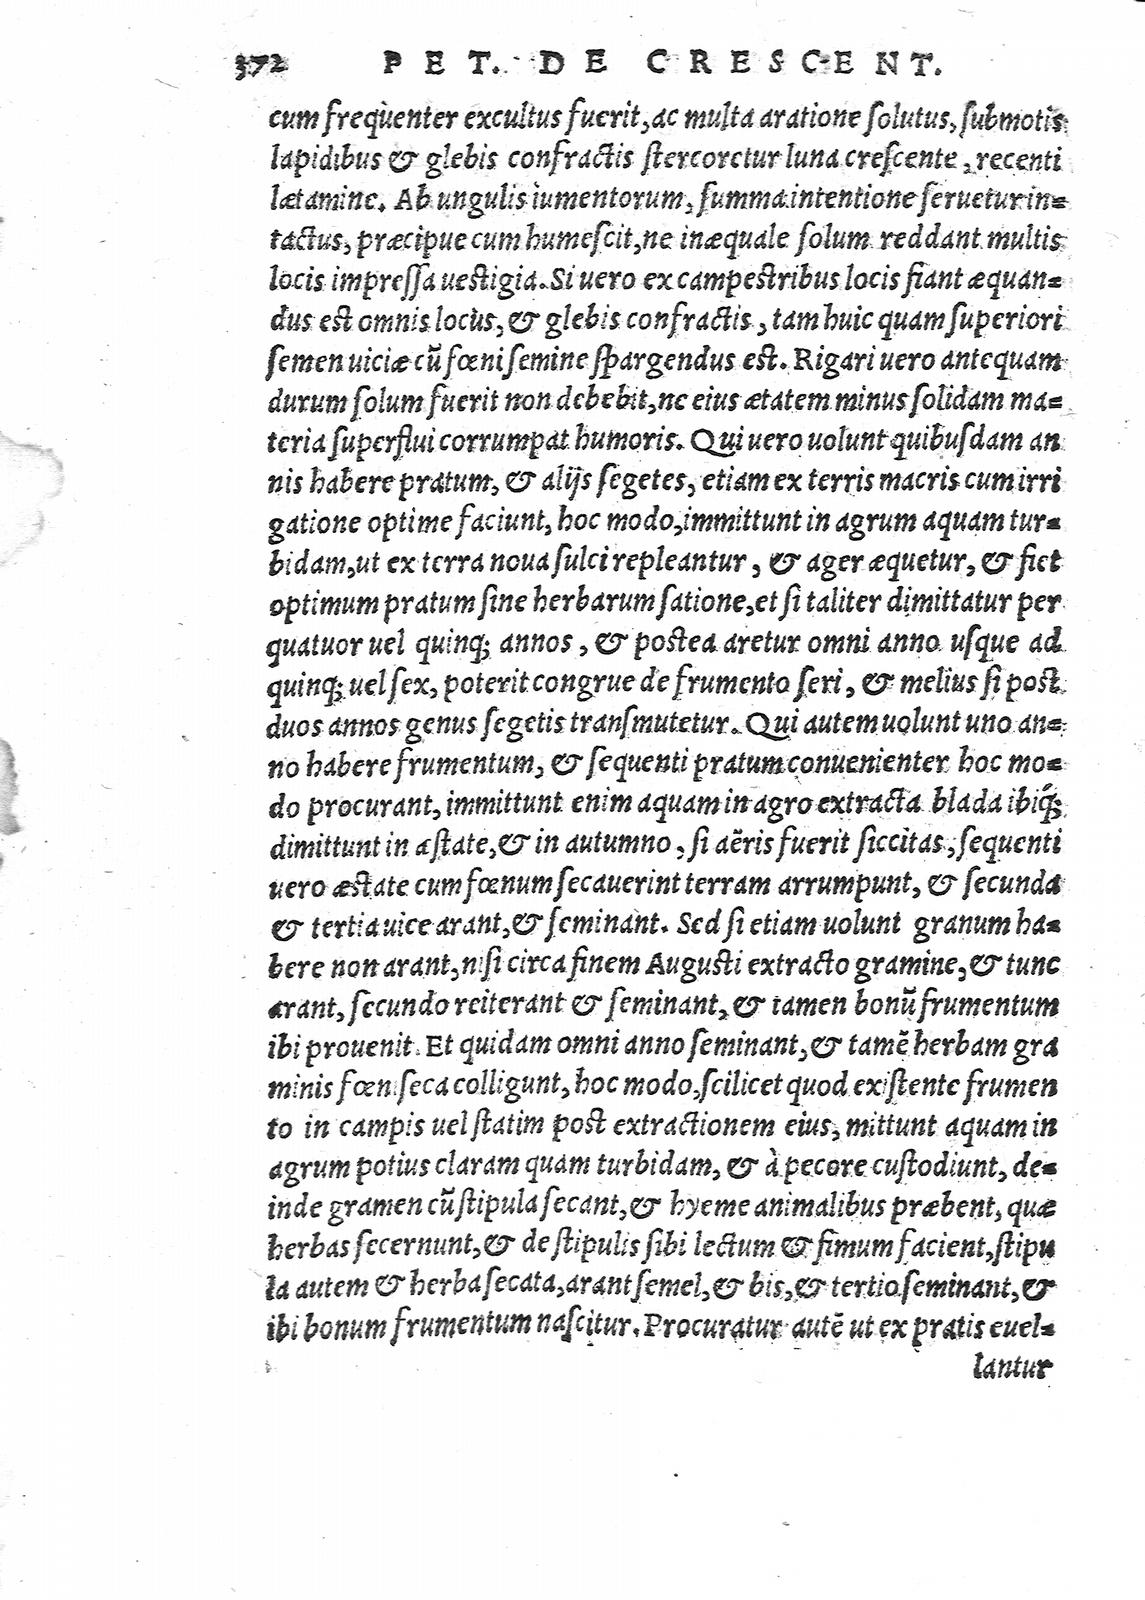 372 PET. DE CRESCENT.
cum freqùenter excultus fuerit, ac multa aratione ſolutus, ſubmotis
lapidibus & glebis confractis ſtercoretur luna creſcente, recenti
lætamine. Ab ungulis iumentorum, ſumma intentione ſeruetur in=
tactus, præcipue cum humeſcit, ne inæquale ſolum reddant multis
locis impreſſa ueſtigia. Si uero ex campeſtribus locis fiant æquan=
dus eſt omnis locùs, & glebis confractis, tam huic quam ſuperiori
ſemen uiciæ cũ fœni ſemine ſpargendus eſt. Rigari uero antequam
durum ſolum fuerit non debebit, ne eius ætatem minus ſolidam ma=
teria ſuperflui corrumpat humoris. Qui uero uolunt quibuſdam an
nis habere pratum, & alijs ſegetes, etiam ex terris macris cum irri
gatione optime faciunt, hoc modo, immittunt in agrum aquam tur=
bidam, ut ex terra noua ſulci repleantur, & ager æquetur, & fiet
optimum pratum ſine herbarum ſatione, et ſi taliter dimittatur per
quatuor uel quinq; annos, & poſtea aretur omni anno uſque ad
quinq; uel ſex, poterit congrue de frumento ſeri, & melius ſi poſt
duos annos genus ſegetis tranſmutetur. Qui autem uolunt uno an=
no habere frumentum, & ſequenti pratum conuenienter hoc mo=
do procurant, immittunt enim aquam in agro extracta blada ibiq́;
dimittunt in æſtate, & in autumno, ſi aëris fuerit ſiccitas, ſequenti
uero æſtate cum fœnum ſecauerint terram arrumpunt, & ſecunda
& tertia uice arant, & ſeminant. Sed ſi etiam uolunt granum ha=
bere non arant, niſi circa finem Auguſti extracto gramine, & tunc
arant, ſecundo reiterant & ſeminant, & tamen bonũ frumentum
ibi prouenit. Et quidam omni anno ſeminant, & tamẽ herbam gra
minis fœniſeca colligunt, hoc modo, ſcilicet quod exiſtente frumen
to in campis uel ſtatim poſt extractionem eius, mittunt aquam in
agrum potius claram quam turbidam, & à pecore cuſtodiunt, de=
inde gramen cũ ſtipula ſecant, & hyeme animalibus præbent, quæ
herbas ſecernunt, & de ſtipulis ſibi lectum & fimum facient, ſtipu
la autem & herba ſecata, arant ſemel, & bis, & tertio ſeminant, &
ibi bonum frumentum naſcitur. Procuratur autẽ ut ex pratis euel=
lantur